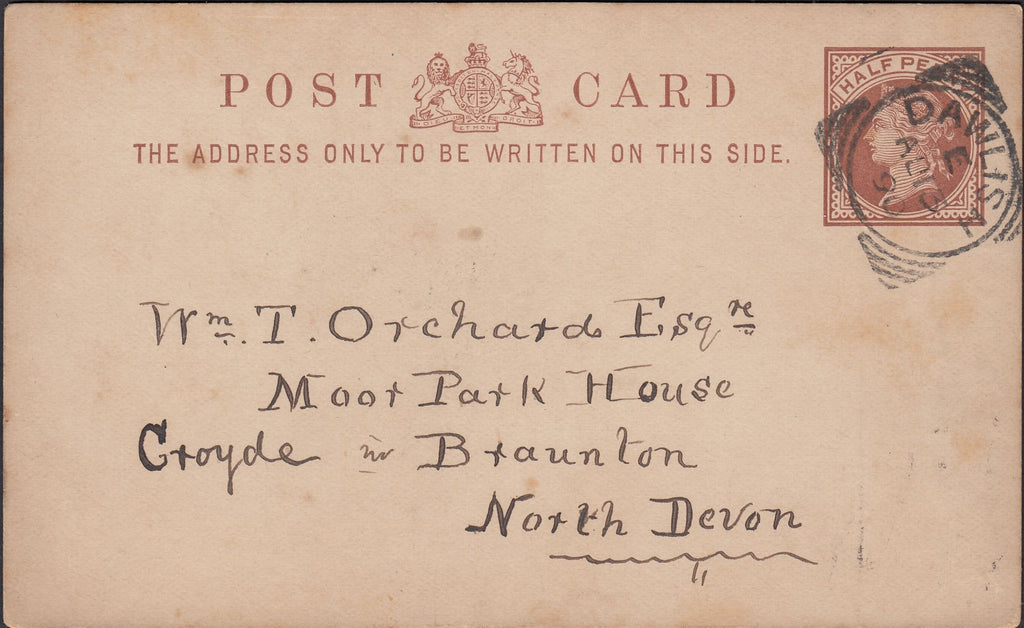 POST CARD
DIEU ET MON DROIT
THE ADDRESS ONLY TO BE WRITTEN ON THIS SIDE.
HALF PE
DAWLISH
E
AU 19
90
Wm. T. Orchard Esqre
Moor Park House
Croyde in Braunton
North Devon